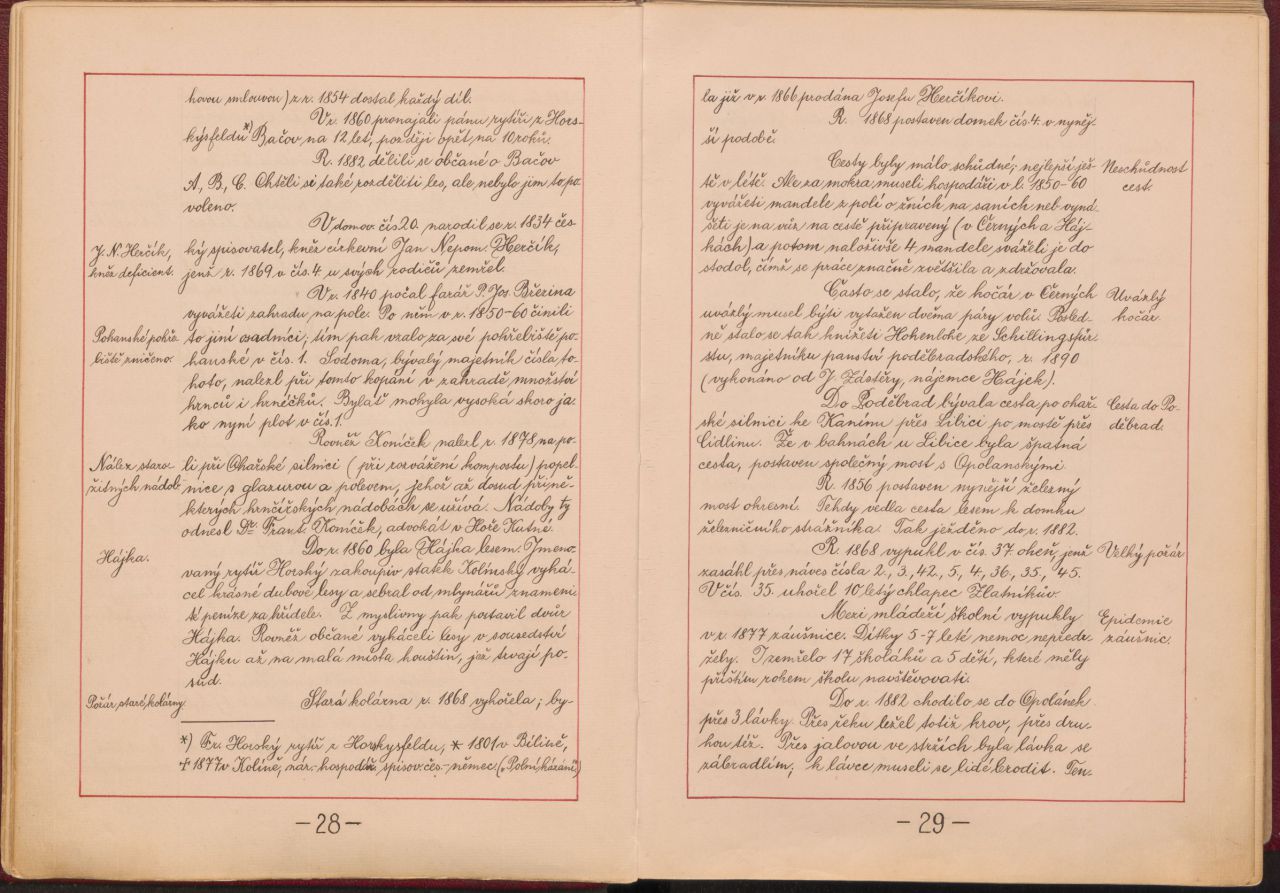 hovou smlouvou) z r. 1854 dostal každý díl.
V r. 1860 pronajali pánu rytíři z Hors-
kýsfeldu*) Bačov na 12 let, později opět na 10 roků.
R. 1882 dělili se občané o Bačov
A, B, C. Chtěli si také rozděliti les, ale nebylo jim to po-
voleno.
V domov. čís. 20. narodil se r. 1834 čes-
J. N. Herčík,
kněz deficient.
ký spisovatel, kněz církevní Jan Nepom. Herčík,
jenž r. 1869 v čís. 4 u svých rodičů zemřel.
V r. 1840 počal farář P. Jos. Březina
vyvážeti zahradu na pole. Po něm v r. 1850-60 činili
Pohanské pohře-
biště zničeno.
to jiní osadníci; tím pak vzalo za své pohřebiště po-
hanské v čís. 1. Sodoma, bývalý majetník čísla to-
hoto, nalezl při tomto kopání v zahradě množství
hrnců i hrnéčků. Bylať mohyla vysoká skoro ja-
ko nyní plot v čís. 1.
Rovněž Koníček nalezl r. 1878, na po-
Nález staro-
žitných nádob
li při Ohařské silnici (při rozvážení kompostu) popel-
nice s glazurou a polevem, jehož až dosud při ně-
kterých hrnčířských nádobách se užívá. Nádoby ty
odnesl Dr. Frant. Koníček, advokát v Hoře Kutné.
Hájka.
Do r. 1860 byla Hájka lesem. Jmeno-
vaný rytíř Horský zakoupiv statek Kolínský vyká-
cel krásné dubové lesy a sebral od mlynářů znameni-
té peníze za hřídele. Z myslivny pak postavil dvůr
Hájka. Rovněž občané vykáceli lesy v sousedství
Hájku až na malá místa houštin, jež trvají po-
sud.
Požár staré kolárny.
Stará kolárna r. 1868 vyhořela; by-
*) Fr. Horský rytíř z Horskysfeldu, * 1801 v Bílině,
† 1877 v Kolíně, nár.-hospodář. spisov. čes.-němec. („Polní kázání“)
-28-
la již v r. 1866 prodána Josefu Herčíkovi.
R. 1868 postaven domek čís. 4. v nyněj-
ší podobě.
Neschůdnost
cest.
Cesty byly málo schůdné; nejlepší ješ-
tě v létě. Ale za mokra museli hospodáři v l. 1850-60
vyvážeti mandele z polí o žních na saních neb vyná-
šeti je na vůz na cestě připravený (v Černých a Háj-
kách) a potom naloživše 4 mandele sváželi je do
stodol, čímž se práce značně zvětšila a zdržovala.
Uvázlý
kočár.
Často se stalo, že kočár v Černých
uvázlý musel býti vytažen dvěma páry volů. Posled-
ně stalo se tak knížeti Hohenlohe ze Schillingsfür-
stu, majetníku panství poděbradského, r. 1890
(vykonáno od J. Zástěry, nájemce Hájek).
Cesta do Po-
děbrad.
Do Poděbrad bývala cesta po ohař-
ské silnici ke Kanínu přes Libici po mostě přes
Cidlinu. Že v bahnách u Libice byla špatná
cesta, postaven společný most s Opolanskými.
R. 1856 postaven nynější železný
most okresní. Tehdy vedla cesta lesem k domku
železničního strážníka. Tak ježděno do r. 1882.
Velký požár
R. 1868 vypukl v čís. 37. oheň, jenž
zasáhl přes náves čísla 2., 3., 42., 5, 4, 36., 35., 45.
V čís. 35. uhořel 10 letý chlapec Zlatníkův.
Epidemie
záušnic.
Mezi mládeží školní vypukly
v r. 1877 záušnice. Dítky 5-7 leté nemoc nepředr-
žely. I zemřelo 17 školáků a 5 dětí, které měly
příštím rokem školu navštěvovati.
Do r. 1882 chodilo se do Opolánek
přes 3 lávky. Přes řeku ležel totiž krov, přes dru-
hou též. Přes jalovou ve stržích byla lávka se
zábradlím; k lávce museli se lidé brodit. Ten-
-29-